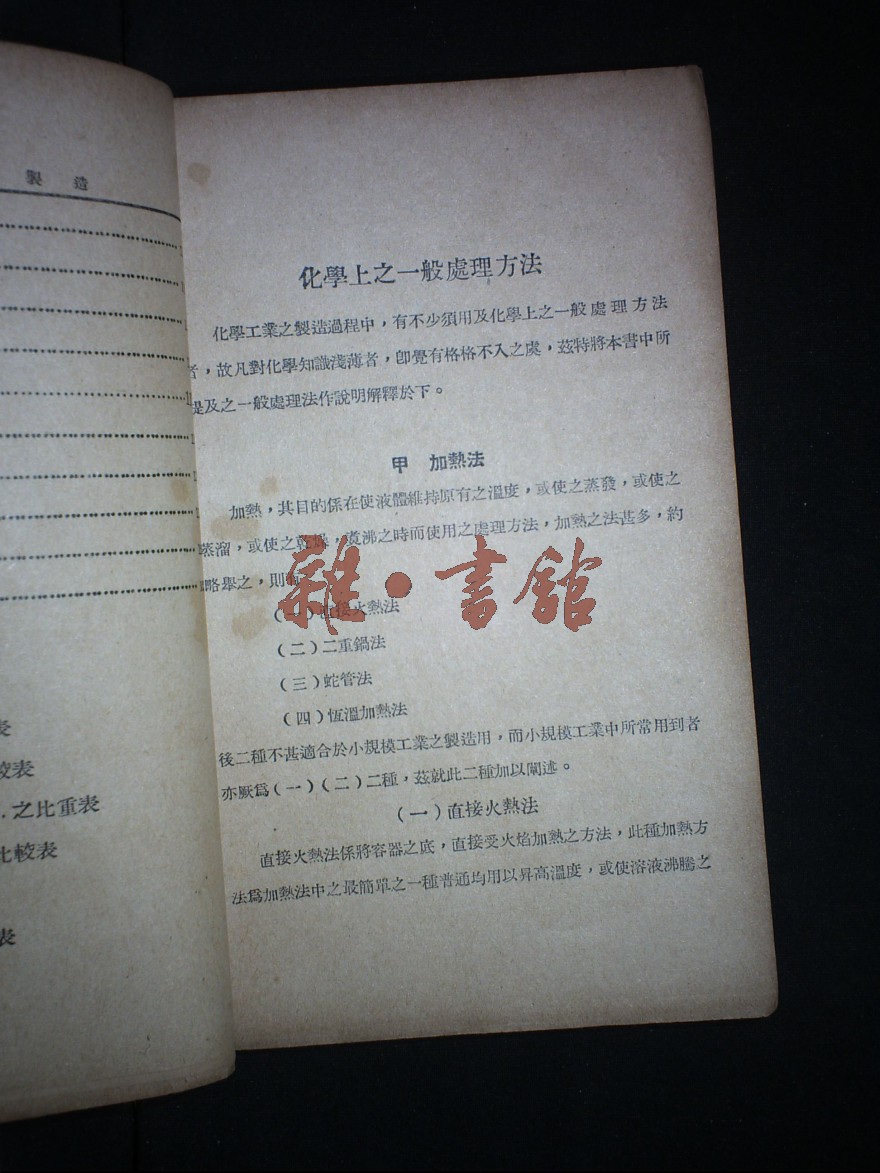 製造
表
較表
.之比重表
比較表
表
化學上之一般處理方法
化學工業之製造過程中，有不少須用及化學上之一般處理方法
者，故凡對化學知識淺薄者，卽覺有格格不入之處，茲特將本書中所
提及之一般處理法作說明解釋於下。
甲 加熱法
加熱，其目的係在使液體維持原有之溫度，或使之蒸發，或使之
蒸溜，或使之乾燥，煑沸之時而使用之處理方法，加熱之法甚多，約
略舉之，則有
雜·書館
（一）直接火熱法
（二）二重鍋法
（三）蛇管法
（四）恆溫加熱法
後二種不甚適合於小規模工業之製造用，而小規模工業中所常用到者
亦厥爲（一）（二）二種，茲就此二種加以闡述。
（一）直接火熱法
直接火熱法係將容器之底，直接受火焰加熱之方法，此種加熱方
法爲加熱法中之最簡單之一種普通均用以昇高溫度，或使溶液沸騰之